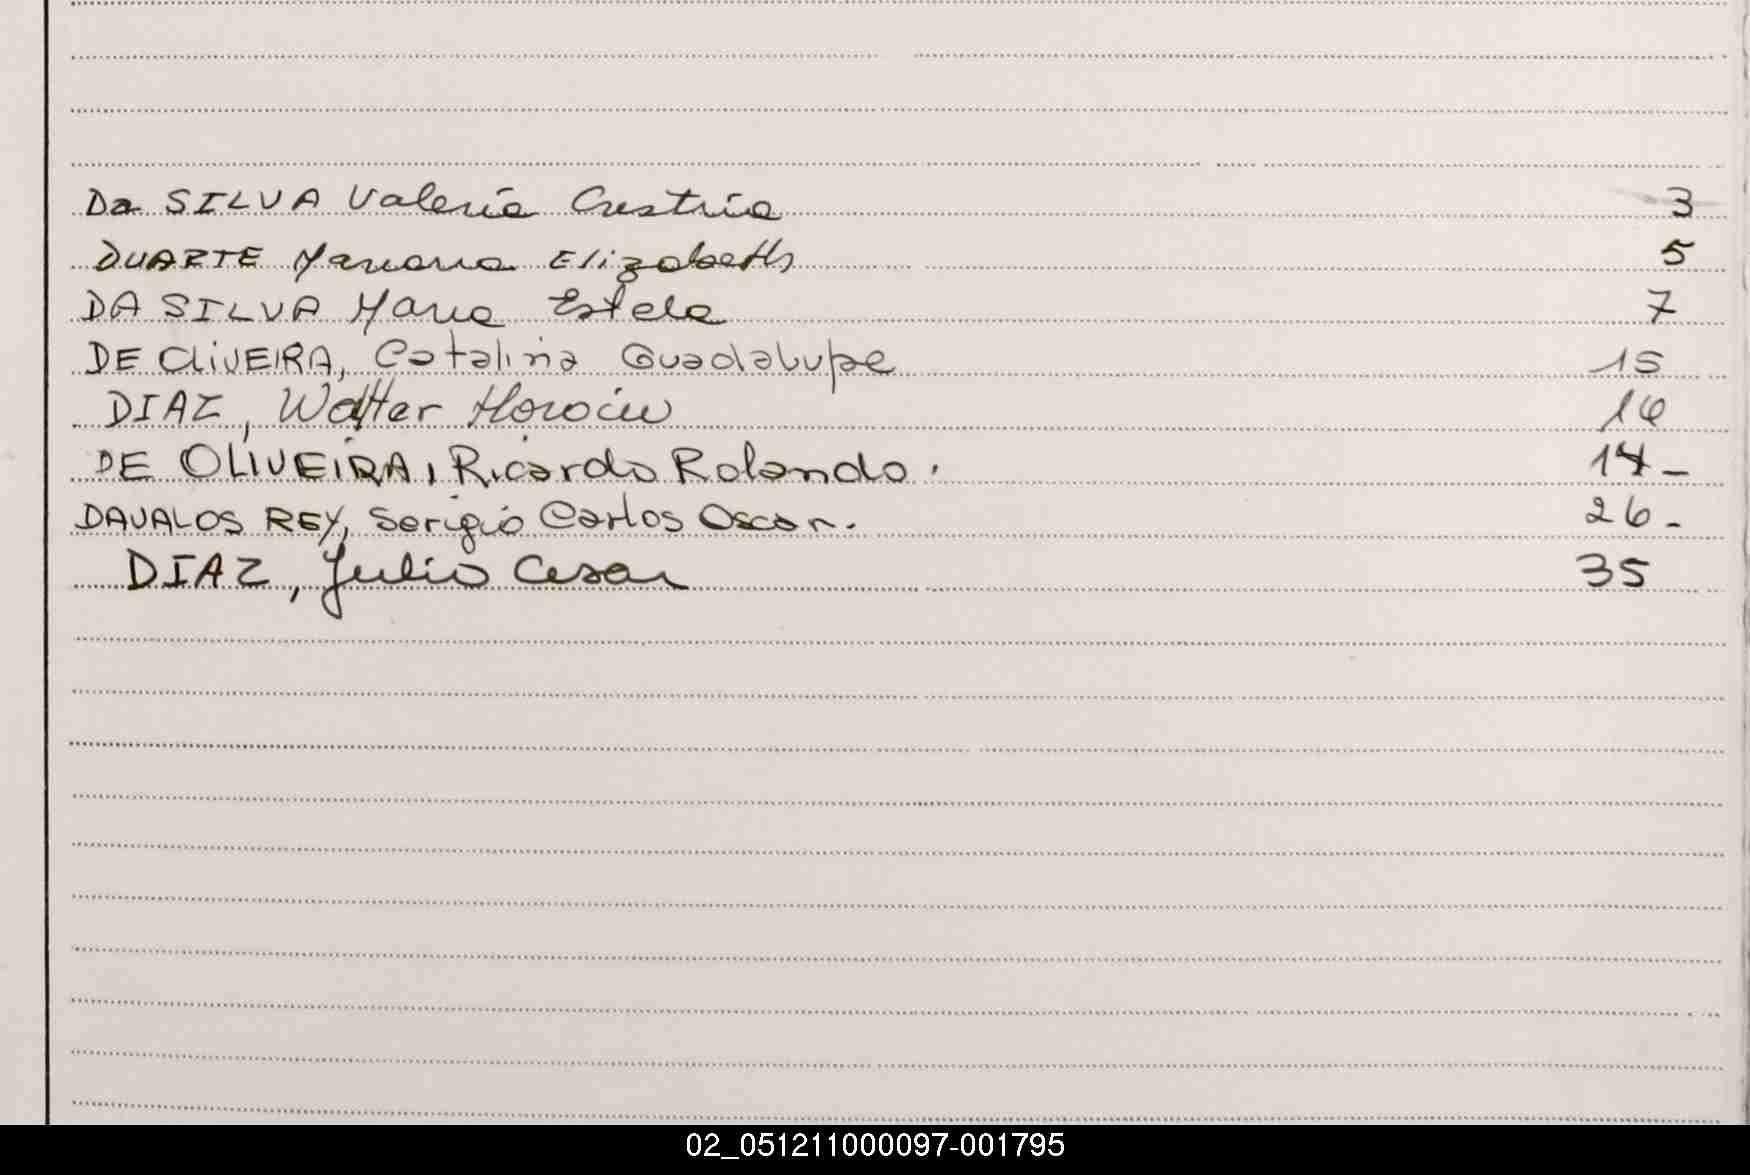 Da SILVA Valeria Cristria 3
DUARTE Mariana Elizabeth 5
DA SILVA Maria Estela 7
DE OLiVEIRA, Catalina Guadalupe 15
DIAZ, Walter Horacio 16
DE OLIVEIRA, Ricardo Rolando. 14-
DAVALOS REY, Sergio Carlos Oscar. 26-
DIAZ, Julio Cesar 35
02_051211000097-001795